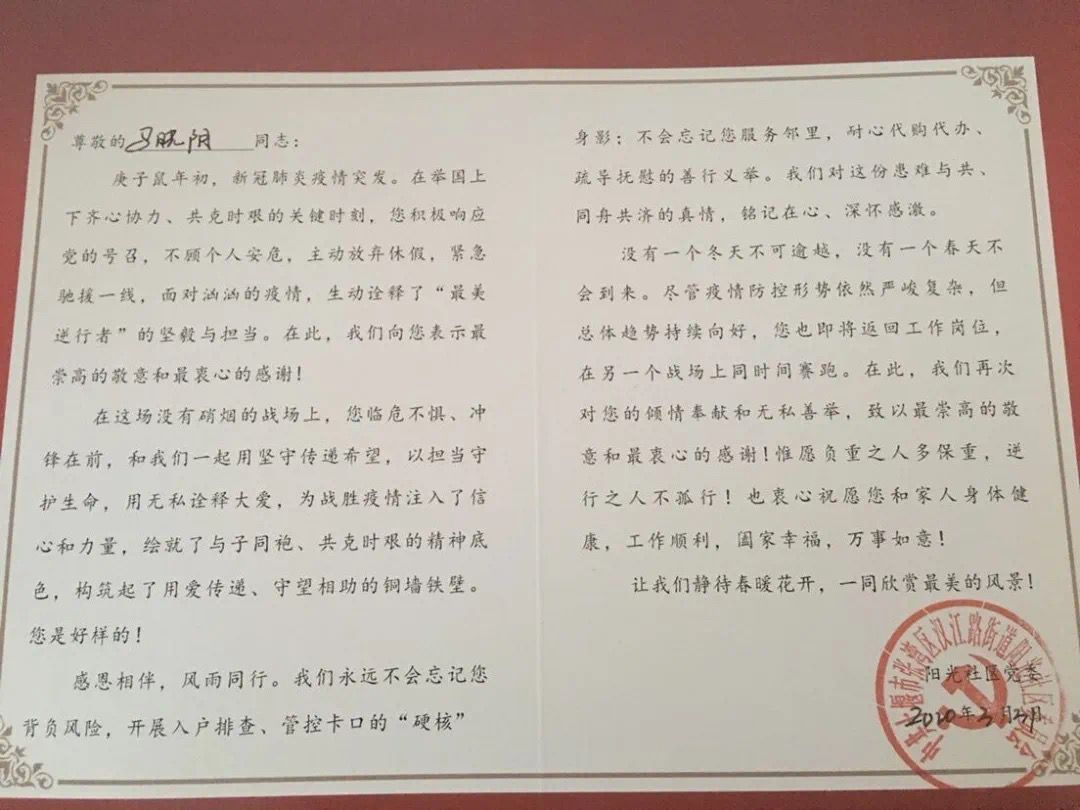 尊敬的马晓阳同志：
庚子鼠年初，新冠肺炎疫情突发。在举国上
下齐心协力、共克时艰的关键时刻，您积极响应
党的号召，不顾个人安危，主动放弃休假，紧急
驰援一线，面对汹汹的疫情，生动诠释了“最美
逆行者”的坚毅与担当。在此，我们向您表示最
崇高的敬意和最衷心的感谢！
在这场没有硝烟的战场上，您临危不惧、冲
锋在前，和我们一起用坚守传递希望，以担当守
护生命，用无私诠释大爱，为战胜疫情注入了信
心和力量，绘就了与子同袍、共克时艰的精神底
色，构筑起了用爱传递、守望相助的铜墙铁壁。
您是好样的！
感恩相伴，风雨同行。我们永远不会忘记您
背负风险，开展入户排查、管控卡口的“硬核”
身影；不会忘记您服务邻里，耐心代购代办、
疏导抚慰的善行义举。我们对这份患难与共、
同舟共济的真情，铭记在心、深怀感激。
没有一个冬天不可逾越，没有一个春天不
会到来。尽管疫情防控形势依然严峻复杂，但
总体趋势持续向好，您也即将返回工作岗位，
在另一个战场上同时间赛跑。在此，我们再次
对您的倾情奉献和无私善举，致以最崇高的敬
意和最衷心的感谢！惟愿负重之人多保重，逆
行之人不孤行！也衷心祝愿您和家人身体健
康，工作顺利，阖家幸福，万事如意！
让我们静待春暖花开，一同欣赏最美的风景！
阳光社区党委
2020年3月31